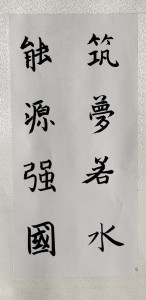 筑夢若水
能源强國